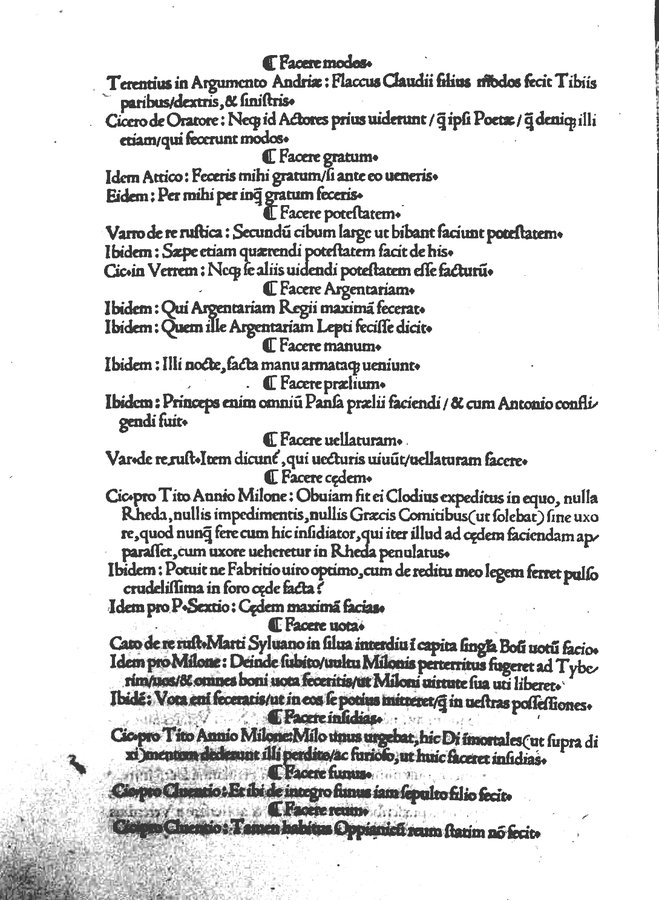 ¶ Facere modos.
Terentius in Argumento Andriæ : Flaccus Claudii filius modos fecit Tibiis
paribus/dextris, & sinistris.
Cicero de Oratore : Neqꝫ id Actores prius uiderunt / q̃ ipsi Poetæ / q̃ deniqꝫ illi
etiam/qui fecerunt modos.
¶ Facere gratum.
Idem Attico : Feceris mihi gratum/si ante eo ueneris.
Eidem : Per mihi per inq̃ gratum feceris.
¶ Facere potestatem.
Varro de re rustica : Secundũ cibum large ut bibant faciunt potestatem.
Ibidem : Sæpe etiam quærendi potestatem facit de his.
Cic.in Verrem : Neqꝫ se aliis uidendi potestatem esse facturũ.
¶ Facere Argentariam.
Ibidem : Qui Argentariam Regii maximã fecerat.
Ibidem : Quem ille Argentariam Lepti fecisse dicit.
¶ Facere manum.
Ibidem : Illi nocte, facta manu armataqꝫ ueniunt.
¶ Facere prælium.
Ibidem : Princeps enim omniũ Pansa prælii faciendi / & cum Antonio confli-
gendi fuit.
¶ Facere uellaturam.
Var.de re.rust.Item dicunt᷑, qui uecturis uiuũt/uellaturam facere.
¶ Facere cędem.
Cic.pro Tito Annio Milone : Obuiam fit ei Clodius expeditus in equo, nulla
Rheda, nullis impedimentis, nullis Græcis Comitibus(ut solebat) sine uxo
re, quod nunq̃ fere cum hic insidiator, qui iter illud ad cędem faciendam ap-
parasset, cum uxore ueheretur in Rheda penulatus.
Ibidem : Potuit ne Fabritio uiro optimo, cum de reditu meo legem ferret pulso
crudelissima in foro cęde facta?
Idem pro P.Sextio : Cędem maximã facias.
¶ Facere uota.
Cato de re rust.Marti Syluano in silua interdiu ĩ capita singl̃a Boũ uotũ facio.
Idem pro Milone : Deinde subito/uultu Milonis perterritus fugeret ad Tybe-
rim/uos/& omnes boni uota feceritis/ut Miloni uirtute sua uti liberet.
Ibidẽ : Vota eni feceratis/ut in eos se potius mitteret/q̃ in uestras possessiones.
¶ Facere insidias.
Cic.pro Tito Annio Milone:Milo unus urgebat, hic Di ĩmortales(ut supra di
xi)mentem dederunt illi perdito/ac furioso, ut huic faceret insidias.
¶ Facere funus.
Cic.pro Cluentio : Et ibi de integro funus iam sepulto filio fecit.
¶ Facere reum.
Cic.pro Cluentio : Tamen habitus Oppianicũ reum statim nõ fecit.